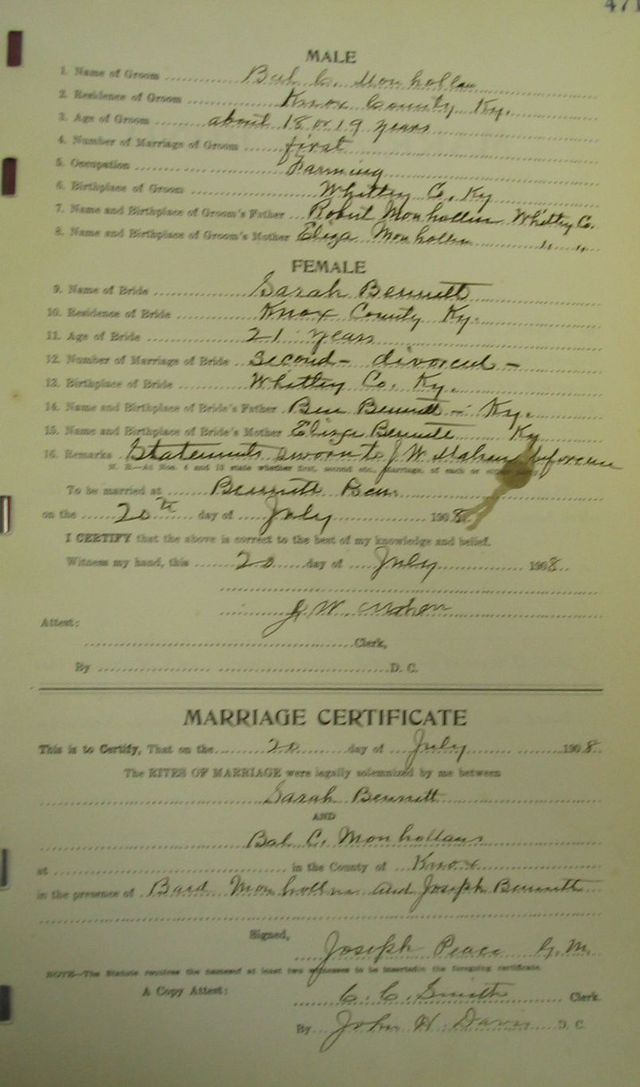 471
MALE
1. Name of Groom Bal C. Monhollan
2. Residence of Groom Knox County Ky.
3. Age of Groom about 18 or 19 years
4. Number of Marriage of Groom first
5. Occupation Farming
6. Birthplace of Groom Whitley C. Ky
7. Name and Birthplace of Groom's Father Robert Monhollin Whitley C.
8. Name and Birthplace of Groom's Mother Eliza Monhollin " "
FEMALE
9. Name of Bride Sarah Bennett
10. Residence of Bride Knox County Ky.
11. Age of Bride 21 years
12. Number of Marriage of Bride Second - divorced -
13. Birthplace of Bride Whitley Co. Ky.
14. Name and Birthplace of Bride's Father Ben Bennett - Ky.
15. Name and Birthplace of Bride's Mother Eliza Bennett Ky
16. Remarks Statements sworn to J. W. before me
N. B.—At Nos. 4 and 12 state whether first, second etc., marriage, of each or
To be married at Bennett Ben
on the 20th day of July 1908
I CERTIFY that the above is correct to the best of my knowledge and belief.
Witness my hand, this 20 day of July 1908.
J. W.
Attest:
Clerk,
By D. C.
MARRIAGE CERTIFICATE
This is to Certify, That on the 20 day of July 1908.
The RITES OF MARRIAGE were legally solemnized by me between
Sarah Bennett
AND
Bal C. Monhollans
at in the County of Knox
in the presence of Bard Monhollin and Joseph Bennett
Signed,
Joseph Peace G. M.
NOTE—The Statute requires the names of at least two witnesses to be inserted in the foregoing certificate.
A Copy Attest: C. C. Smith Clerk.
By John H. Davis D. C.